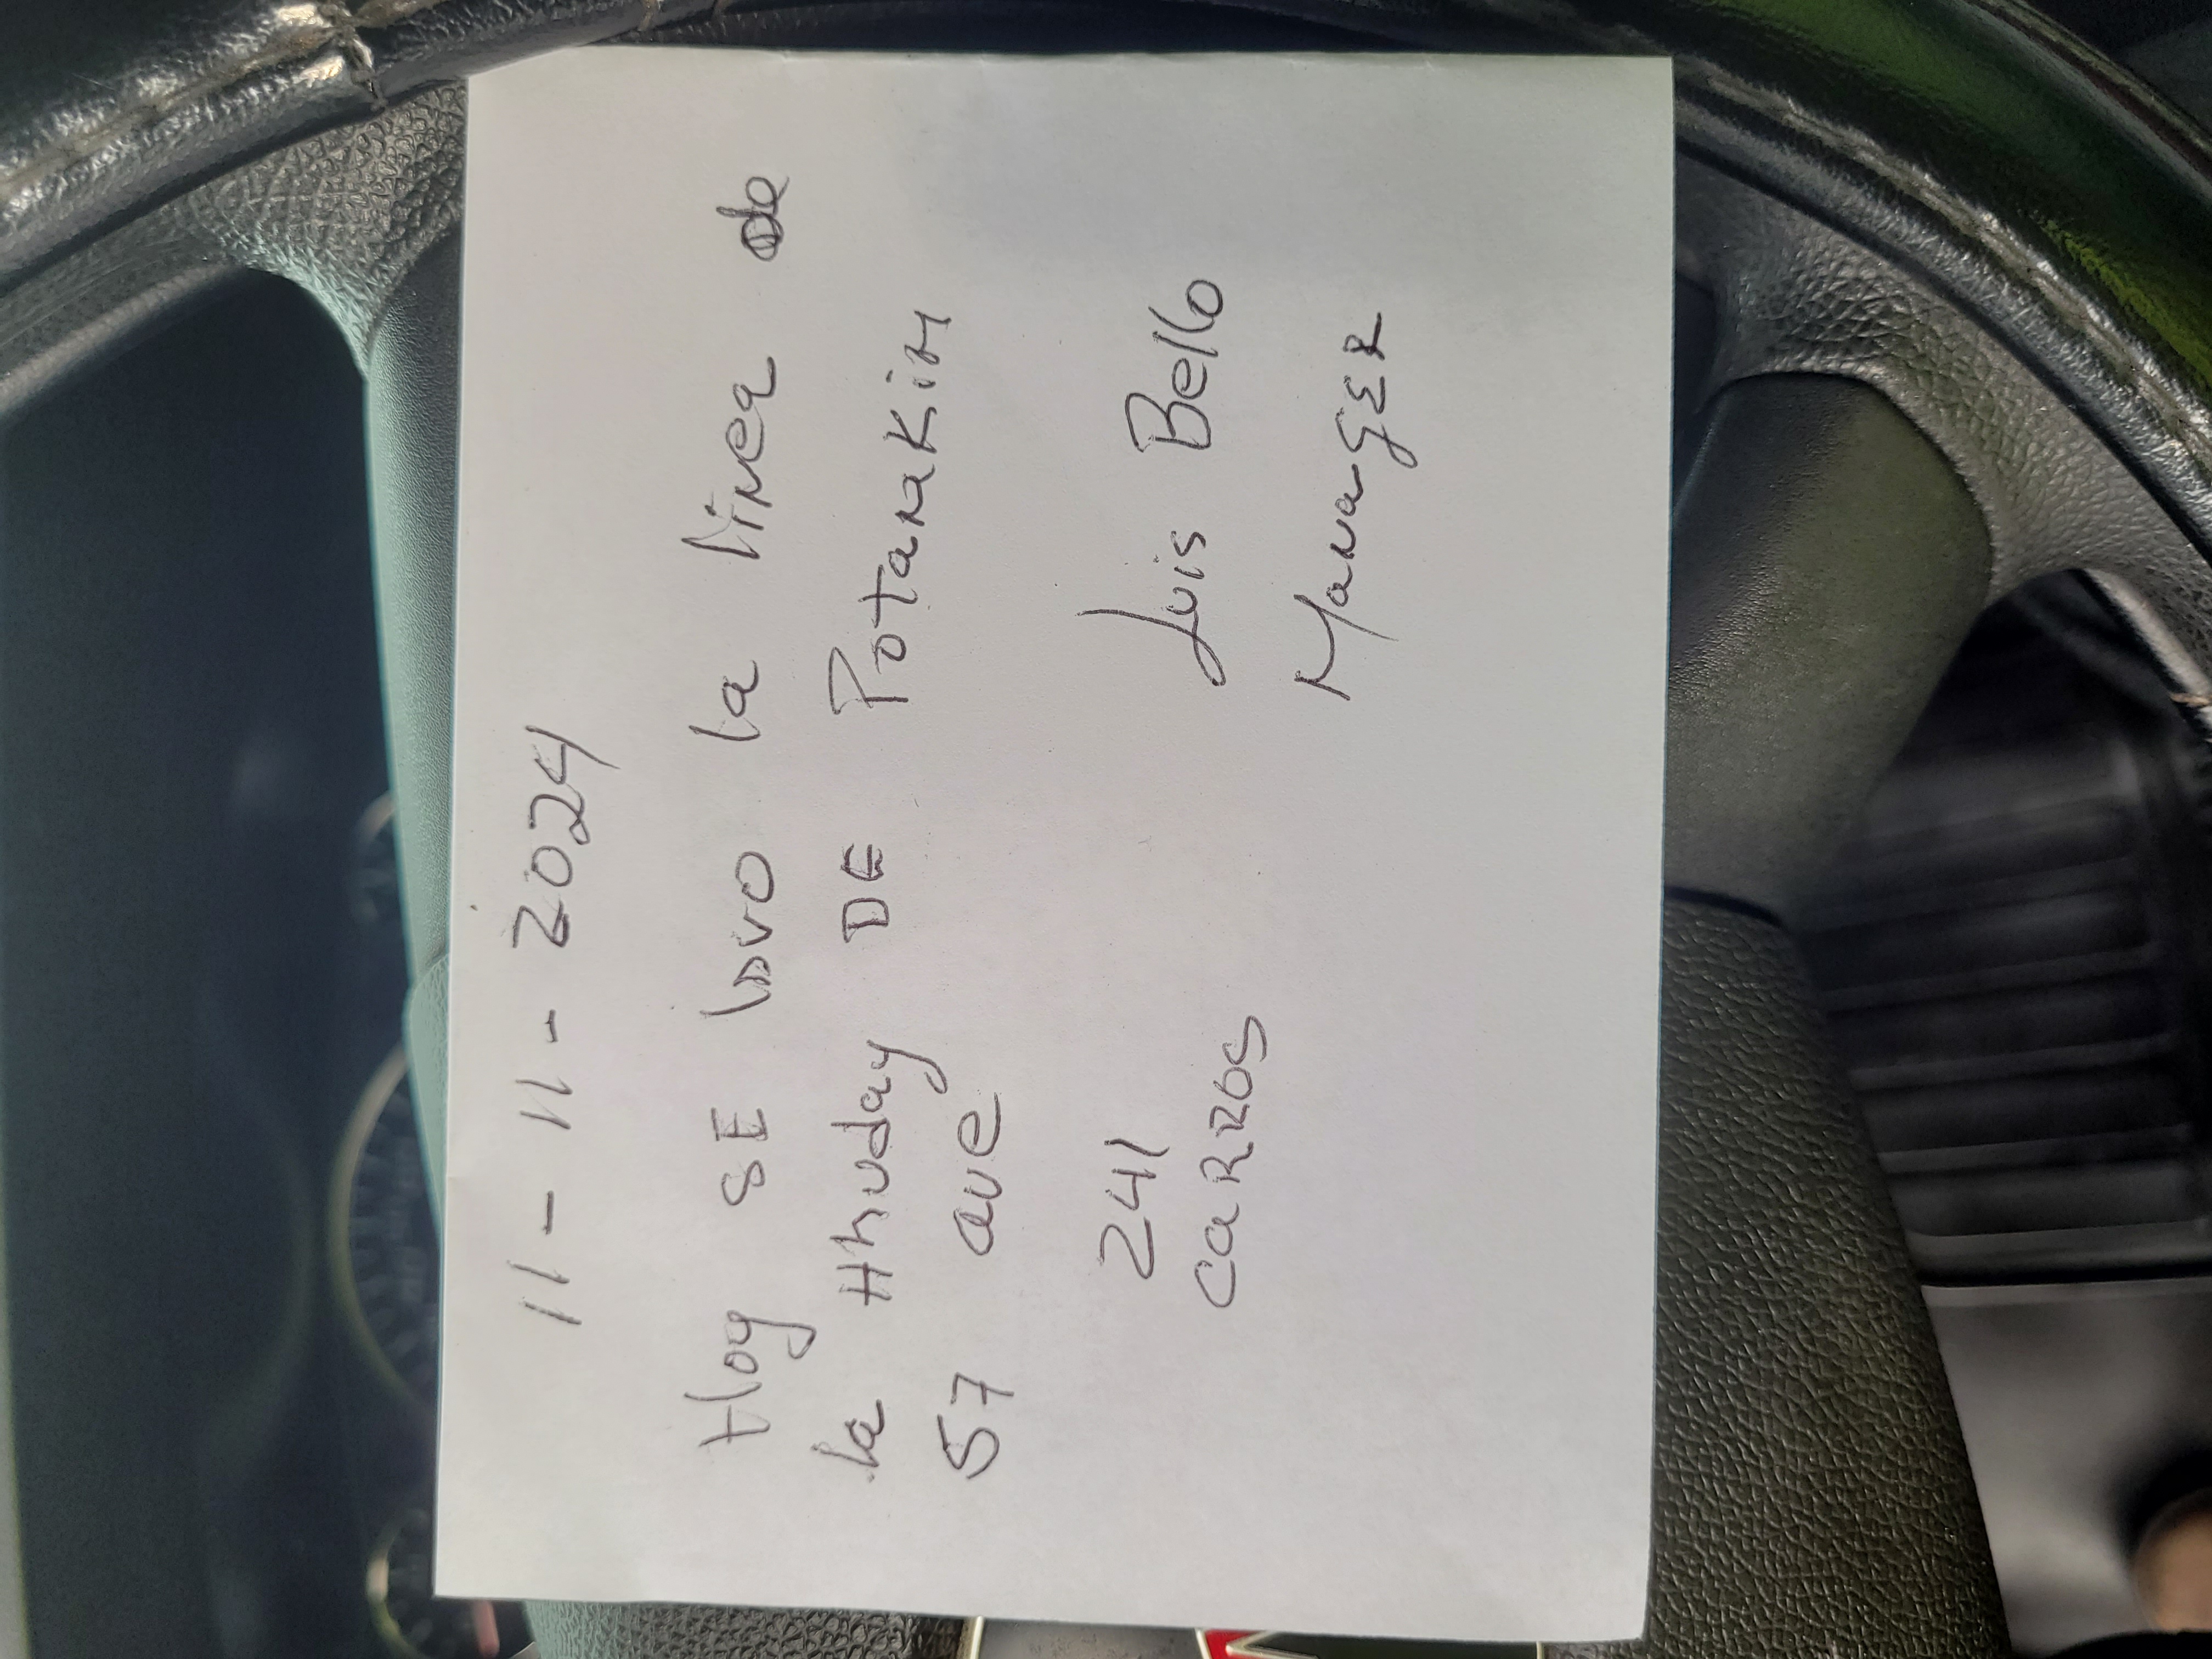 11 - 11 - 2024
Hoy SE lavo la linea de
la Hhuday DE Potanakin
57 ave
241
CaRROS
Luis Bello
ManagER